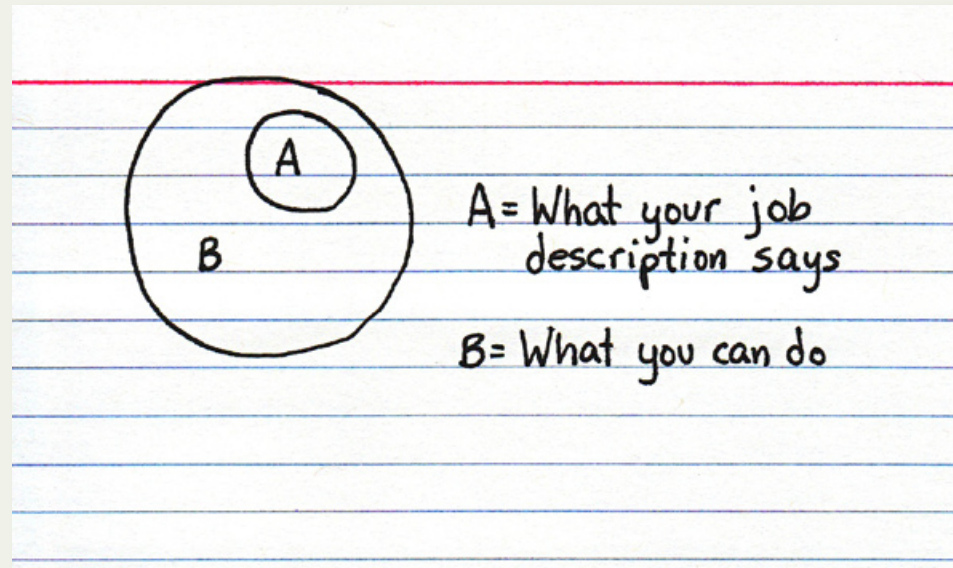 A
B
A= What your job
description says
B= What you can do